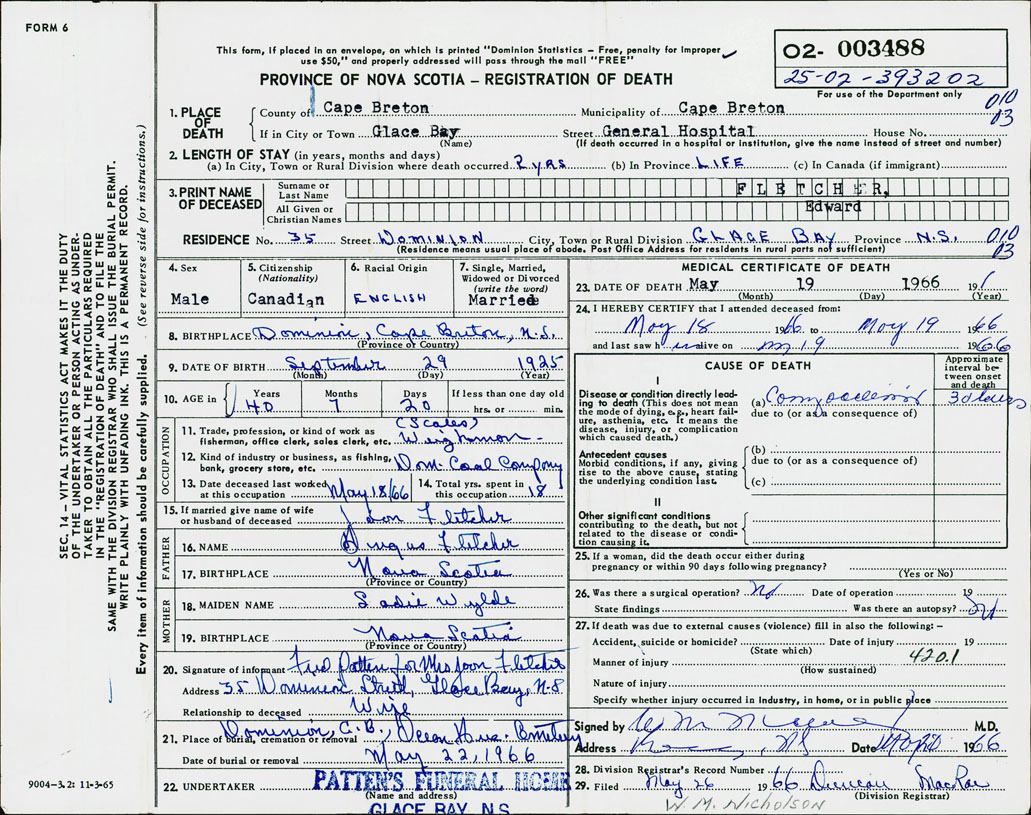 FORM 6
This form, if placed in an envelope, on which is printed "Dominion Statistics – Free, penalty for improper
use $50," and properly addressed will pass through the mail "FREE"
PROVINCE OF NOVA SCOTIA – REGISTRATION OF DEATH
O2- 003488
25-02-393202
For use of the Department only
010
03
1. PLACE OF DEATH
County of Cape Breton Municipality of Cape Breton
If in City or Town Glace Bay Street General Hospital House No.
(Name) (If death occurred in a hospital or institution, give the name instead of street and number)
2. LENGTH OF STAY (in years, months and days)
(a) In City, Town or Rural Division where death occurred 2 yrs (b) In Province LIFE (c) In Canada (if immigrant)
3. PRINT NAME OF DECEASED
Surname or Last Name FLETCHER,
All Given or Christian Names Edward
RESIDENCE No. 35 Street DOMINION City, Town or Rural Division GLACE BAY Province N.S. 010
(Residence means usual place of abode. Post Office Address for residents in rural parts not sufficient) 03
4. Sex Male
5. Citizenship (Nationality) Canadian
6. Racial Origin ENGLISH
7. Single, Married, Widowed or Divorced (write the word) Married
8. BIRTHPLACE Dominion, Cape Breton, N.S.
(Province or Country)
9. DATE OF BIRTH September 29 1925
(Month) (Day) (Year)
10. AGE in Years 40 Months 7 Days 20 If less than one day old hrs. or min.
OCCUPATION
11. Trade, profession, or kind of work as fisherman, office clerk, sales clerk, etc. (Scales) Weighman
12. Kind of industry or business, as fishing, bank, grocery store, etc. Dom. Coal Company
13. Date deceased last worked at this occupation May 18/66
14. Total yrs. spent in this occupation 18
15. If married give name of wife or husband of deceased Joan Fletcher
FATHER
16. NAME Angus Fletcher
17. BIRTHPLACE Nova Scotia
(Province or Country)
MOTHER
18. MAIDEN NAME Sadie Wylde
19. BIRTHPLACE Nova Scotia
(Province or Country)
20. Signature of informant Fred Patten for Mrs Joan Fletcher
Address 35 Dominion Street, Glace Bay, N.S
Relationship to deceased Wife
21. Place of burial, cremation or removal Dominion, C.B.,
Date of burial or removal May 22, 1966
22. UNDERTAKER PATTEN'S FUNERAL HOME
(Name and address)
GLACE BAY, N.S.
MEDICAL CERTIFICATE OF DEATH
23. DATE OF DEATH May 19 1966 19
(Month) (Day) (Year)
24. I HEREBY CERTIFY that I attended deceased from:
May 18 1966 to May 19 1966
and last saw h im alive on m 19 1966
CAUSE OF DEATH
Approximate interval between onset and death
I
Disease or condition directly leading to death (This does not mean the mode of dying, e.g., heart failure, asthenia, etc. It means the disease, injury, or complication which caused death.)
(a)
due to (or as a consequence of)
Antecedent causes
Morbid conditions, if any, giving rise to the above cause, stating the underlying condition last.
(b)
due to (or as a consequence of)
(c)
II
Other significant conditions
contributing to the death, but not related to the disease or condition causing it.
25. If a woman, did the death occur either during pregnancy or within 90 days following pregnancy?
(Yes or No)
26. Was there a surgical operation? No Date of operation 19
State findings Was there an autopsy? No
27. If death was due to external causes (violence) fill in also the following: –
Accident, suicide or homicide? Date of injury 19
(State which)
Manner of injury 420.1
(How sustained)
Nature of injury
Specify whether injury occurred in industry, in home, or in public place
Signed by M.D.
Address Date 1966
28. Division Registrar's Record Number
29. Filed May 26 1966 Duncan MacRae
(Division Registrar)
W. M. Nicholson
SEC. 14 – VITAL STATISTICS ACT MAKES IT THE DUTY
OF THE UNDERTAKER OR PERSON ACTING AS UNDER-
TAKER TO OBTAIN ALL THE PARTICULARS REQUIRED
IN THE "REGISTRATION OF DEATH" AND TO FILE THE
SAME WITH THE DIVISION REGISTRAR WHO SHALL ISSUE THE BURIAL PERMIT.
WRITE PLAINLY WITH UNFADING INK. THIS IS A PERMANENT RECORD.
Every item of information should be carefully supplied. (See reverse side for instructions.)
9004-3.2: 11-3-65